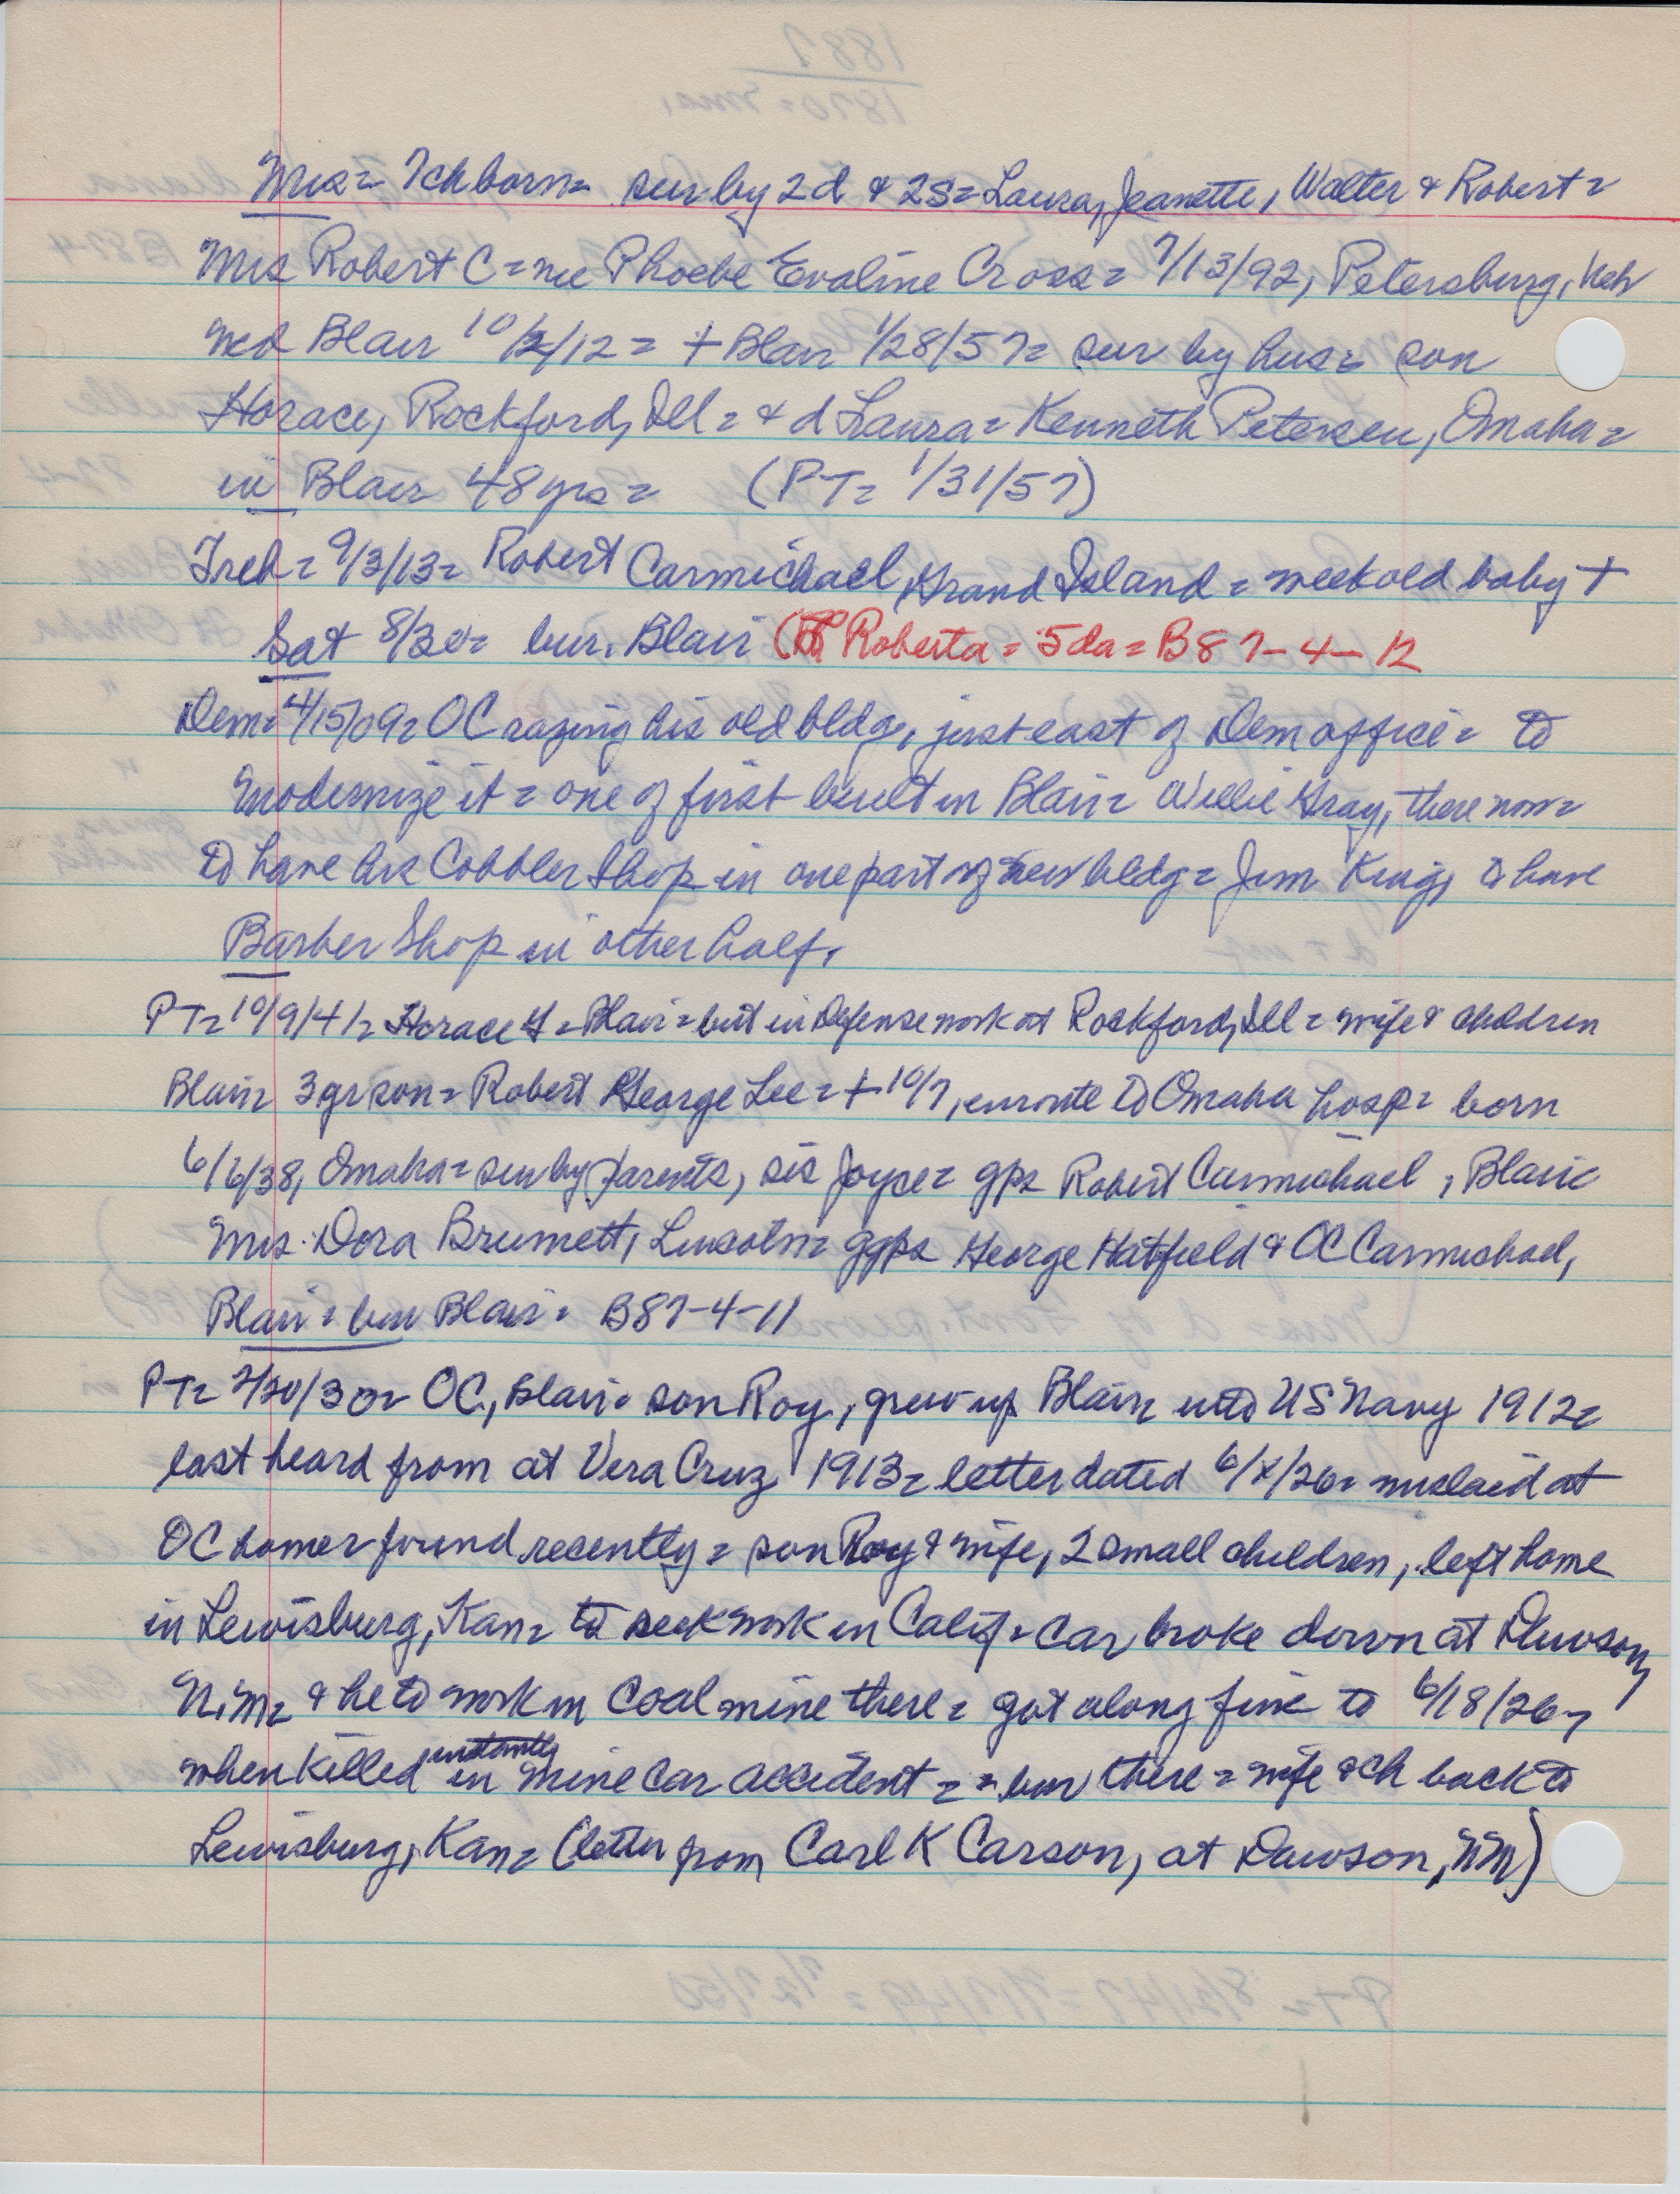 Mrs = 7ch born = sur by 2d & 2s = Laura, Jeanette, Walter & Robert =
Mrs Robert C = nee Phoebe Evaline Cross = 7/13/92, Petersburg, Neb
med Blair 10/2/12 = + Blair 1/28/57 = sur by hus = son
Horace, Rockford, Ill = & d Laura = Kenneth Petersen, Omaha =
in Blair 48 yrs = (PT = 1/31/57)
9/3/13 = Robert Carmichael, Grand Island = week old baby +
Sat 8/30 = bur. Blair ( Roberta = 5 da = B87-4-12
Dem = 4/15/09 = OC razing his old bldg, just east of Dem office = to
modernize it = one of first built in Blair = Willie Gray, there now =
to have his Cobbler Shop in one part of new bldg = Jim King, to have
Barber Shop in other half.
PT = 10/9/41 = Horace G = Blair = but in Defense work at Rockford, Ill = wife & children
Blair = 3 yr son = Robert George Lee = + 10/7, enroute to Omaha hosp = born
6/6/38, Omaha = sur by parents, sis Joyce = gps Robert Carmichael, Blair
Mrs. Dora Brumett, Lincoln = ggps George Hatfield & OC Carmichael,
Blair = bur Blair = B87-4-11
PT = 2/20/30 = OC, Blair = son Roy, grew up Blair = into US Navy 1912 =
last heard from at Vera Cruz 1913 = letter dated 6/x/26 = mislaid at
OC home = found recently = son Roy & wife, 2 small children, left home
in Lewisburg, Kan = to seek work in Calif = car broke down at Dawson,
N.M = & he to work in coal mine there = got along fine to 6/18/26 =
when killed instantly in mine car accident = = bur there = wife & ch back to
Lewisburg, Kan = (letter from Carl K Carson, at Dawson, NM)